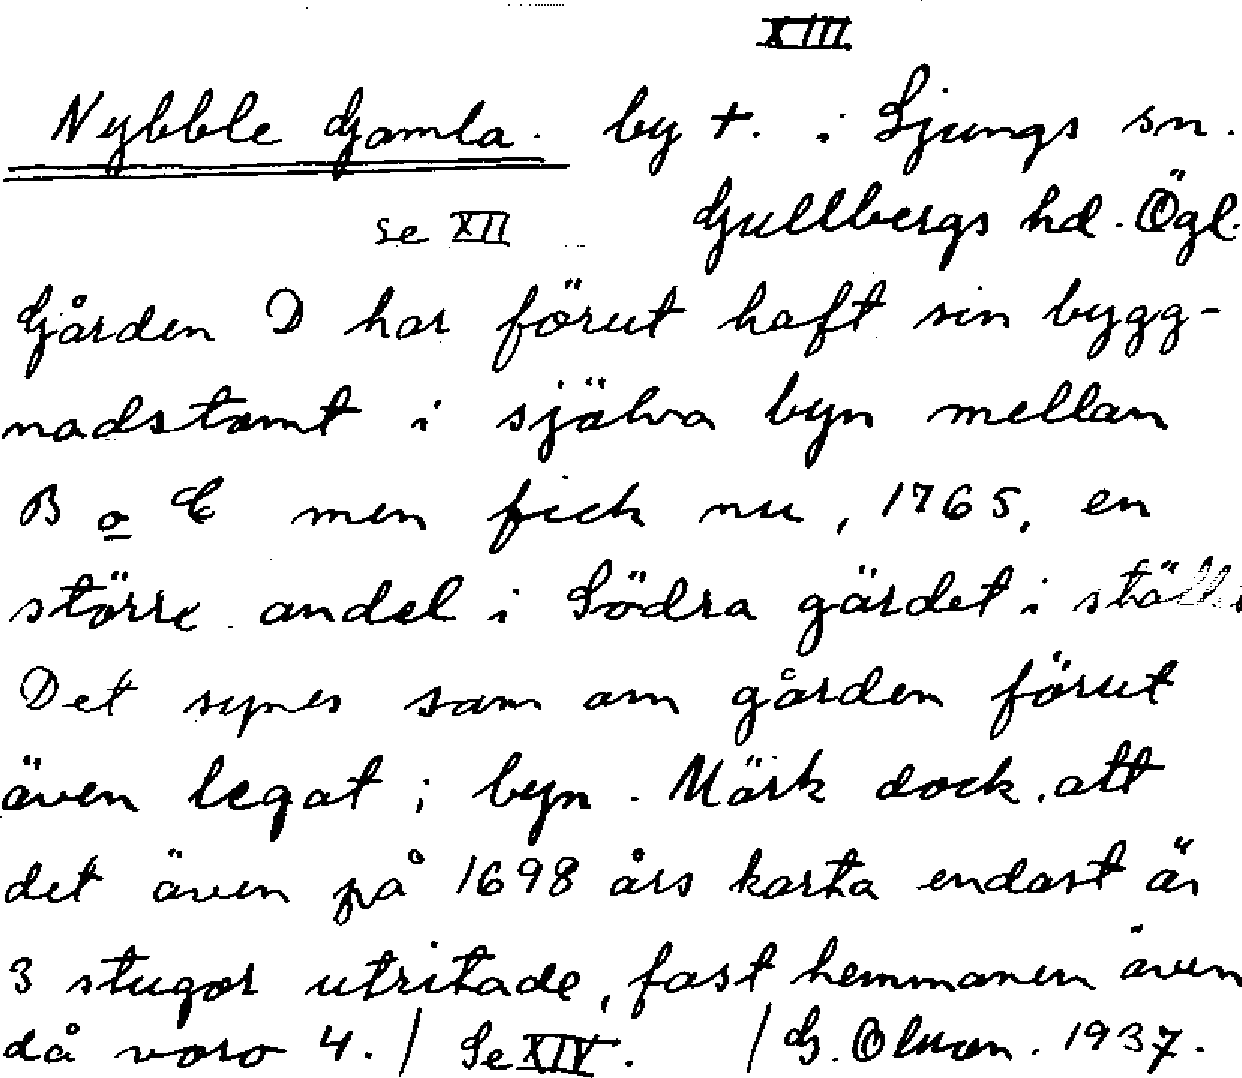 XIII
Nybble Gamla. by +. i Ljungs sn.
se XII Gullbergs hd. Ögl.
Gården D har förut haft sin bygg-
nadstomt i själva byn mellan
B o C men fick nu, 1765, en
större andel i Södra gärdet i ställe
Det synes som om gården förut
även legat i byn. Märk dock att
det även på 1698 års karta endast är
3 stugor utritade, fast hemmanen även
då voro 4. / Se XIV. / G. Olson. 1937.